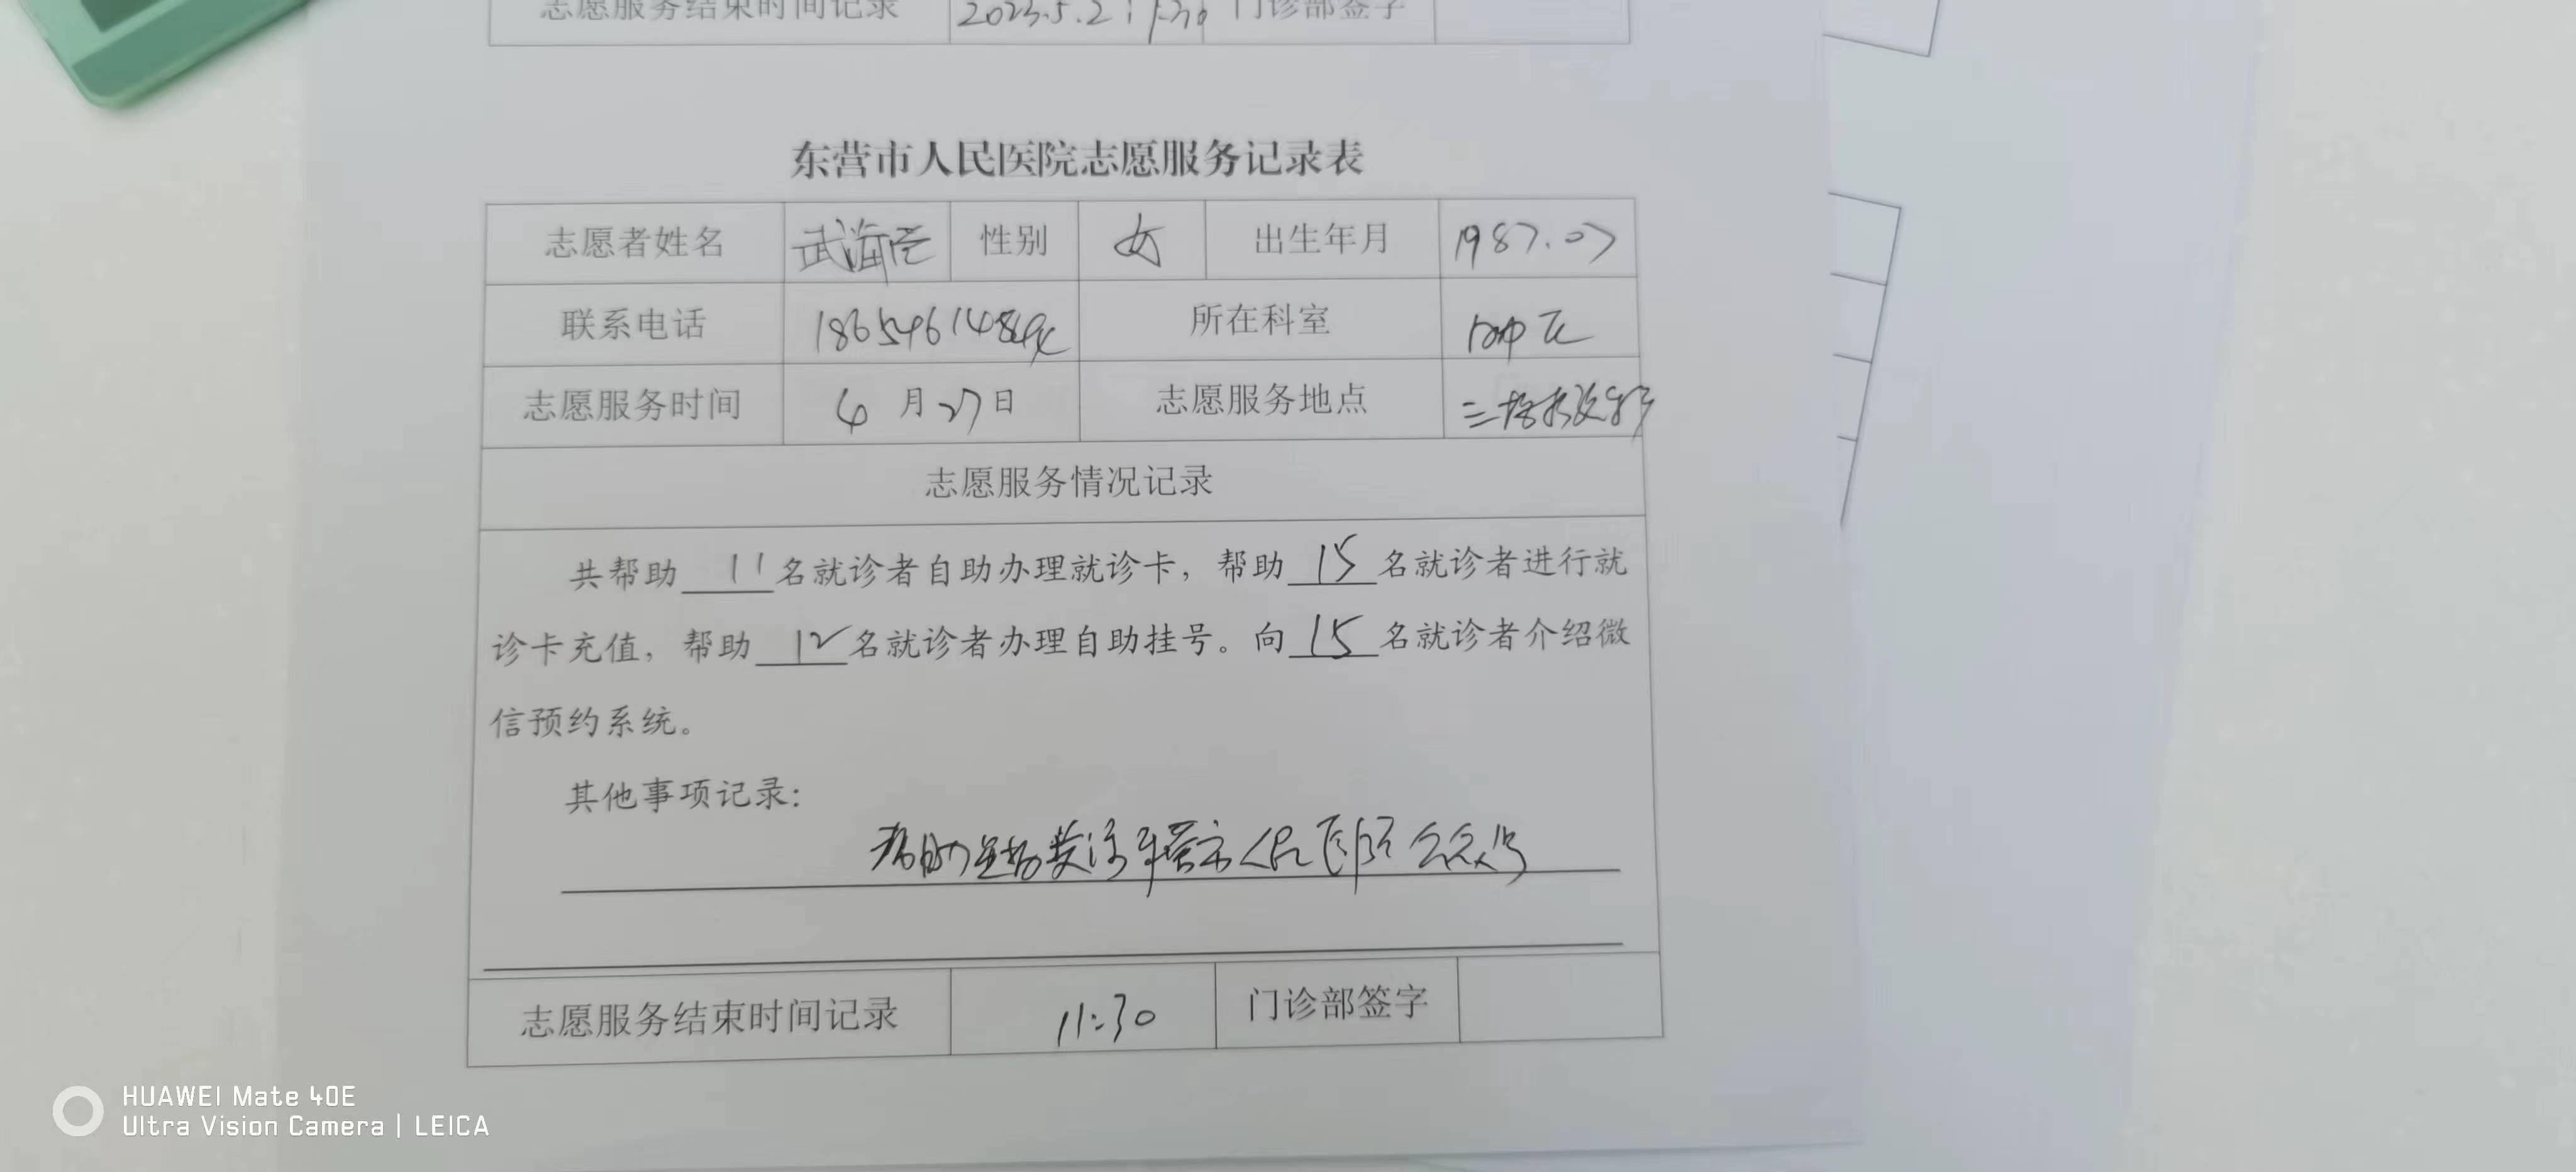 志愿服务结束时间记录 2023.5.2 11:30 门诊部签字
东营市人民医院志愿服务记录表
志愿者姓名 武海 性别 女 出生年月 1987.07
联系电话 所在科室
志愿服务时间 4月27日 志愿服务地点 三楼
志愿服务情况记录
共帮助 11 名就诊者自助办理就诊卡，帮助 15 名就诊者进行就
诊卡充值，帮助 12 名就诊者办理自助挂号。向 15 名就诊者介绍微
信预约系统。
其他事项记录：
帮助患者关注东营市人民医院公众号
志愿服务结束时间记录 11:30 门诊部签字
HUAWEI Mate 40E
Ultra Vision Camera | LEICA